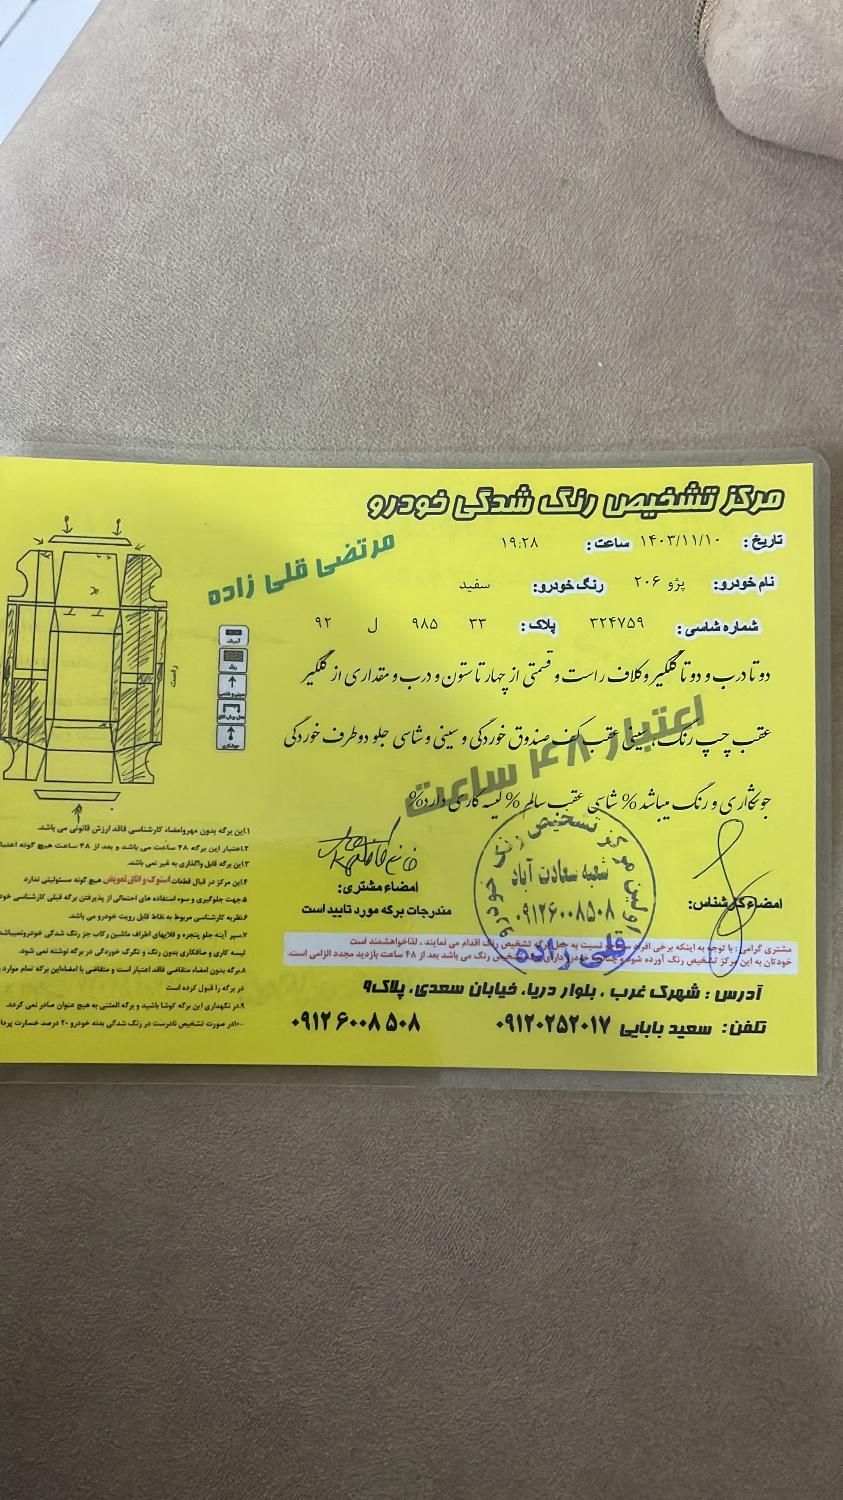 مرکز تشخیص رنگ شدگی خودرو
مرتضی قلی زاده
تاریخ: ۱۴۰۳/۱۱/۱۰ ساعت: ۱۹:۲۸
نام خودرو: پژو ۲۰۶ رنگ خودرو: سفید
شماره شاسی: ۳۲۴۷۵۹ پلاک: ۳۳ ۹۸۵ ل ۹۲
دو تا درب و دو تا گلگیر و کلاف راست و قسمتی از چهار تا ستون و درب و مقداری از گلگیر
عقب چپ رنگ، سینی عقب کف صندوق خوردگی و سینی و شاسی جلو دو طرف خوردگی
جوشکاری و رنگ میباشد % شاسی عقب سالم % لیسه کاری دارد%
اعتبار ۴۸ ساعت
امضاء کارشناس:
اولین مرکز تشخیص رنگ خودرو
شعبه سعادت آباد
۰۹۱۲۶۰۰۸۵۰۸
قلی زاده
امضاء مشتری:
مندرجات برگه مورد تایید است
مشتری گرامی: با توجه به اینکه برخی افراد نسبت به جعل برگه تشخیص رنگ اقدام می نمایند، لذا خواهشمند است
خودتان به این مرکز تشخیص رنگ آورده شود تشخیص رنگ می باشد بعد از ۴۸ ساعت بازدید مجدد الزامی است.
آدرس: شهرک غرب، بلوار دریا، خیابان سعدی، پلاک۹
تلفن: سعید بابایی ۰۹۱۲۰۲۵۲۰۱۷ ۰۹۱۲۶۰۰۸۵۰۸
راست
رنگ
جوشکاری
۱.این برگه بدون مهر و امضاء کارشناسی فاقد ارزش قانونی می باشد.
۲.اعتبار این برگه ۴۸ ساعت می باشد و بعد از ۴۸ ساعت هیچ گونه اعتبا
۳.این برگه قابل واگذاری به غیر نمی باشد.
۴.این مرکز در قبال قطعات استوک و اتاق تعویض هیچ گونه مسئولیتی ندارد
۵.جهت جلوگیری و سوء استفاده های احتمالی از پذیرفتن برگه قبلی کارشناسی خود
۶.نظریه کارشناسی مربوط به نقاط قابل رویت خودرو می باشد.
۷.سپر آینه جلو پنجره و قلابهای اطراف ماشین رکاب جز رنگ شدگی خودرو نمیباشد
لیسه گیری و صافکاری بدون رنگ و تگرگ خوردگی در برگه نوشته نمی شود.
۸.برگه بدون امضاء متقاضی فاقد اعتبار است و متقاضی با امضاء این برگه تمام موارد
در برگه را قبول کرده است
۹.در نگهداری این برگه کوشا باشید و برگه المثنی به هیچ عنوان صادر نمی گردد.
۱۰.در صورت تشخیص نادرست در رنگ شدگی بدنه خودرو ۲۰ درصد خسارت پردا